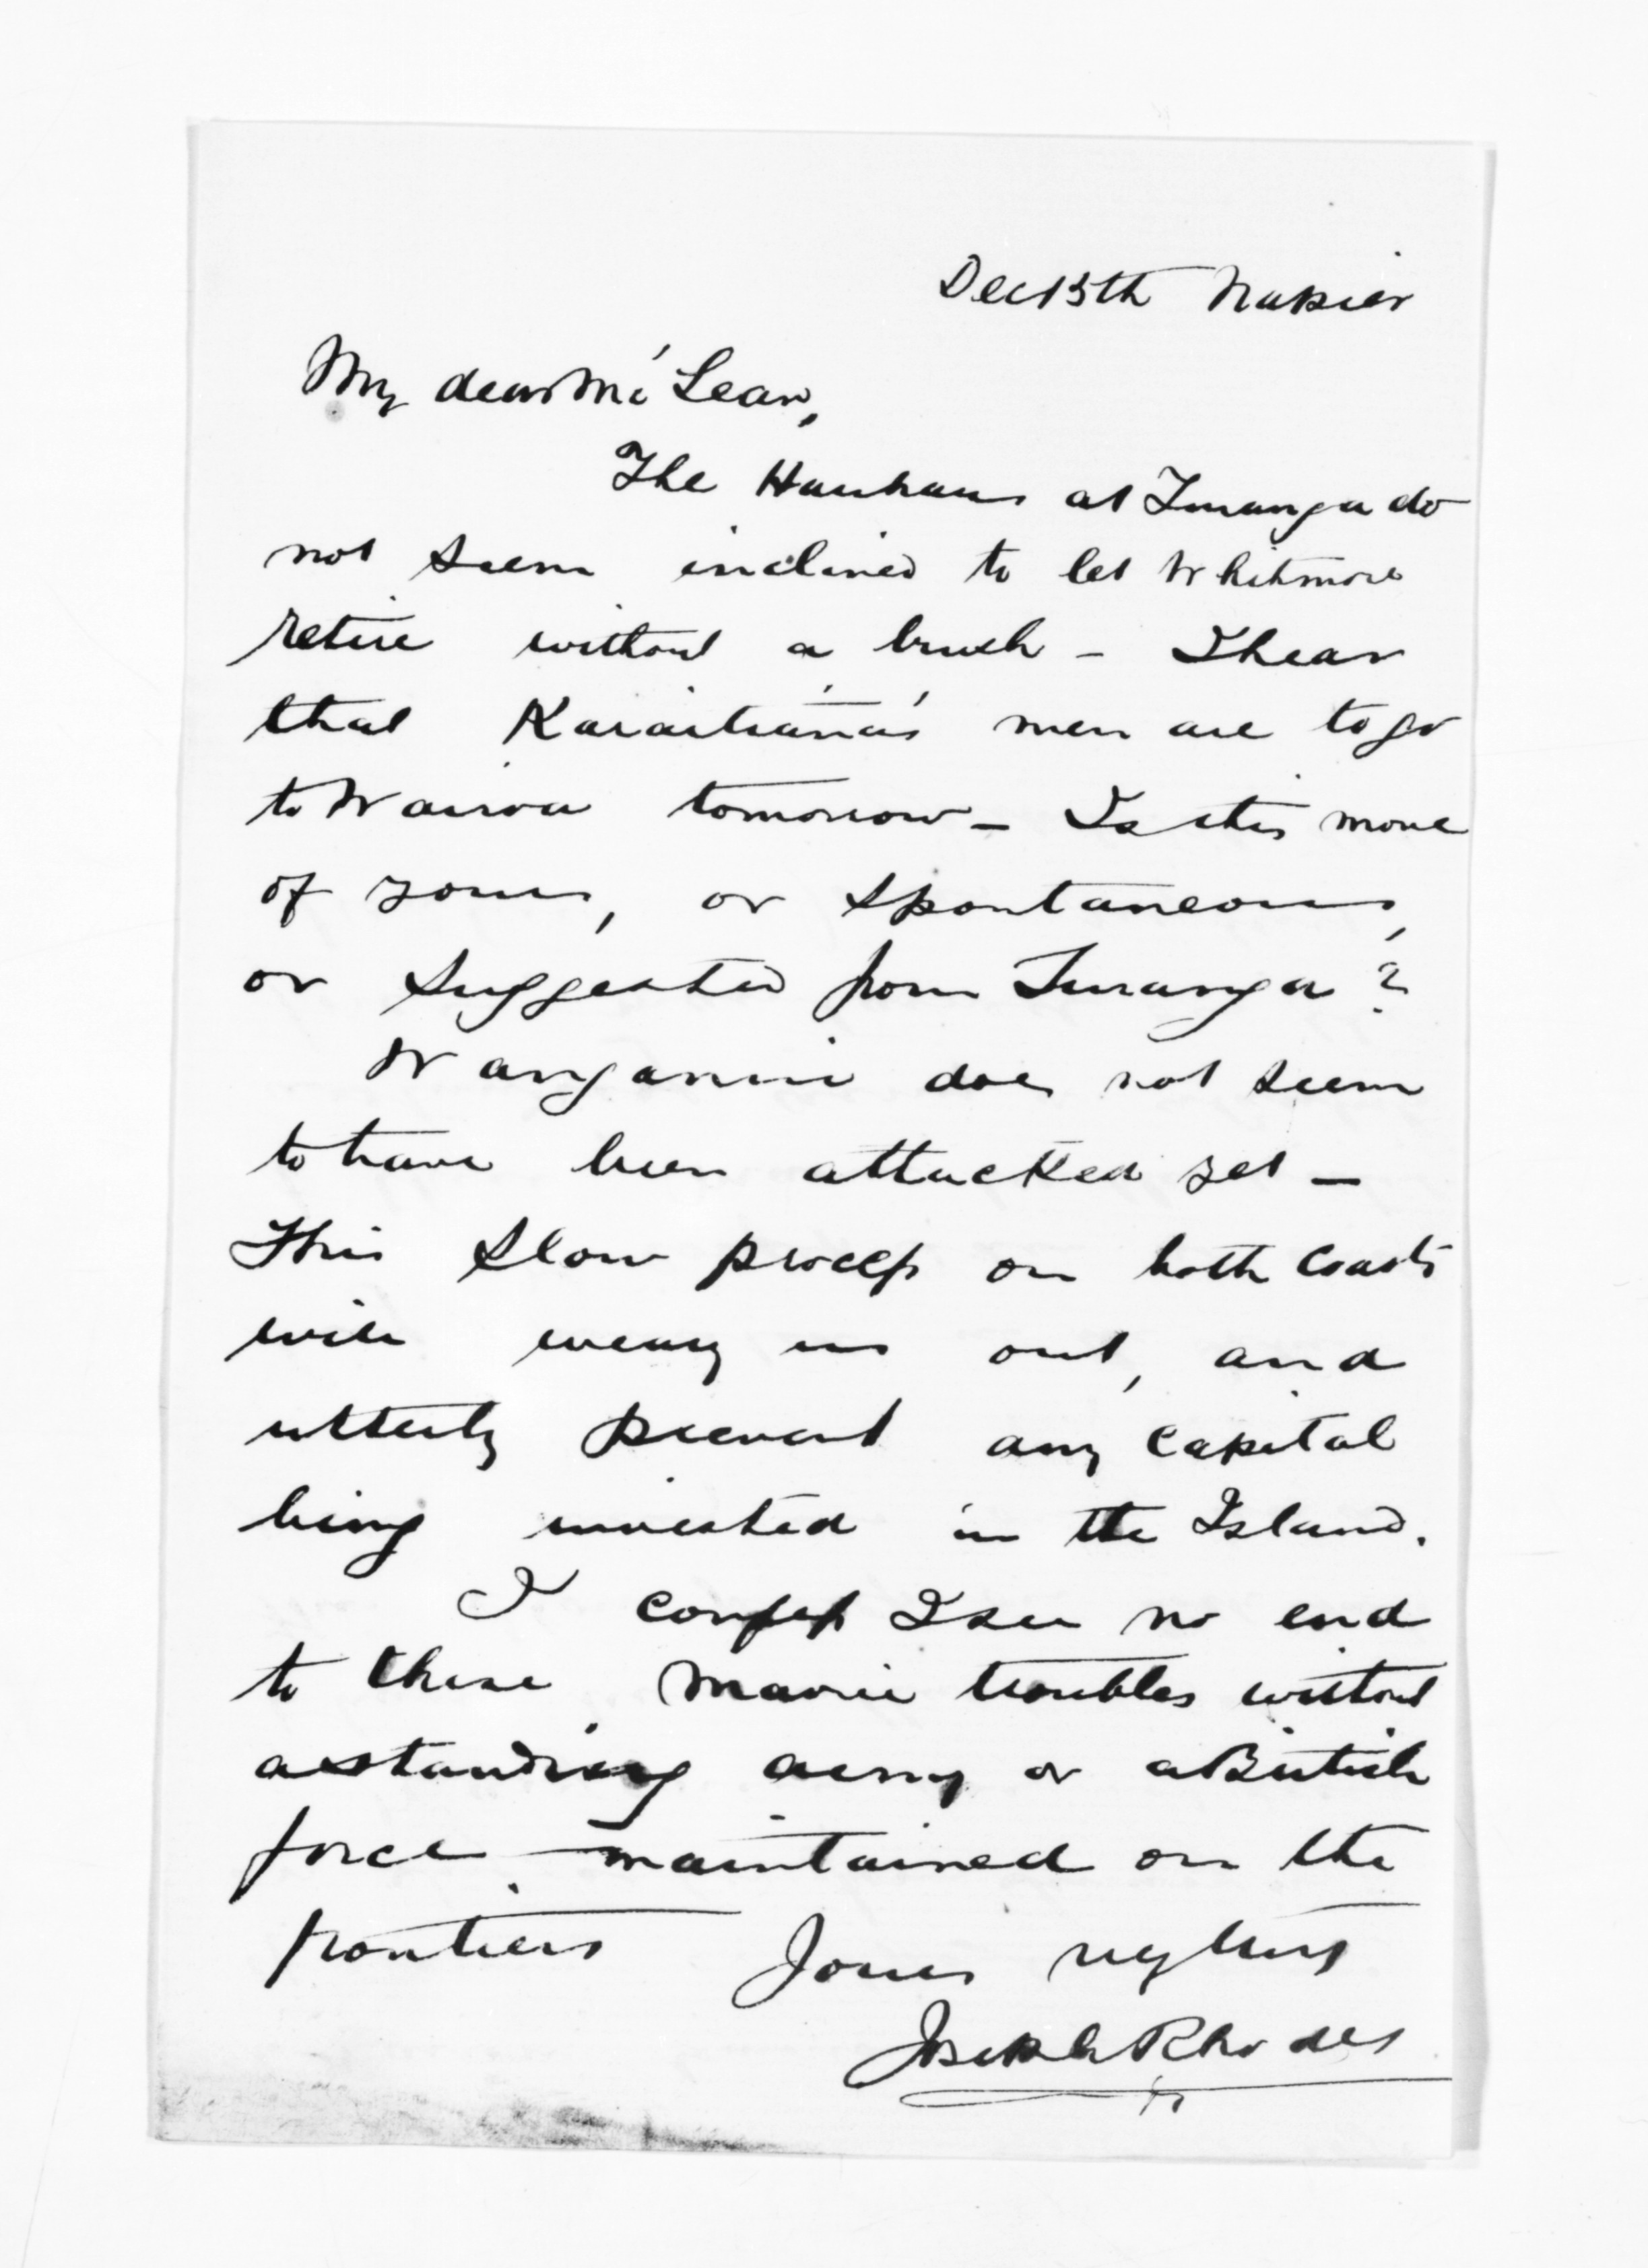 Dec 15th Napier
My dear McLean,
The Hauhaus at Turanga do
not seem inclined to let Whitmore
retire without a brush - I hear
that Karaitiana's men are to go
to Wairoa tomorrow - Is this move
of yours, or spontaneous,
or suggested from Turanga?
Wanganui does not seem
to have been attacked yet -
This slow process on both Coasts
will weary us out, and
utterly prevent any capital
being invested in the Island.
I confess I see no end
to these Maorie troubles without
a standing army or a British
force maintained on the
frontiers Yours very truly
Joseph Rhodes